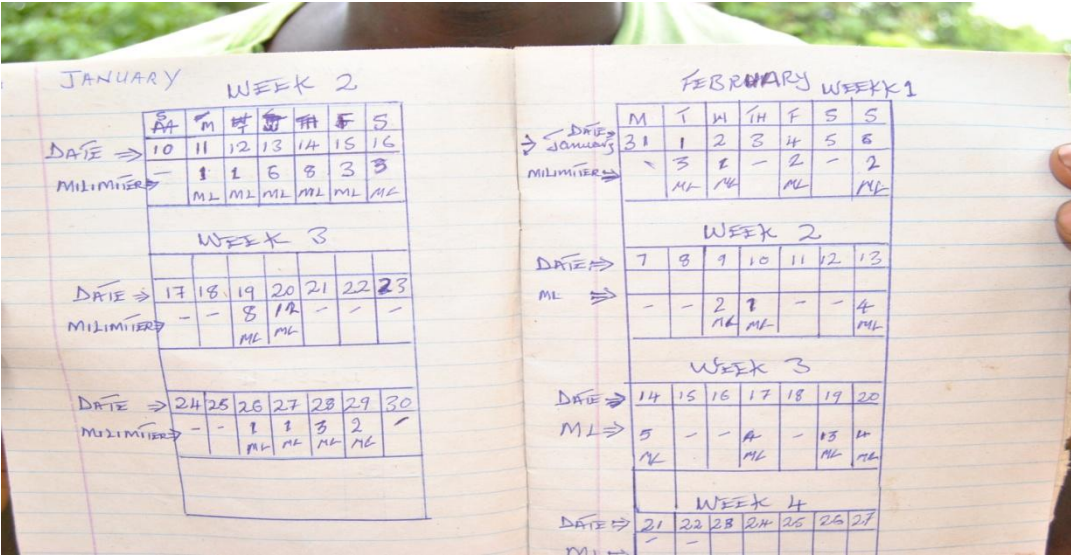 JANUARY
WEEK 2
M T S
DATE ⇒ 10 11 12 13 14 15 16
MILIMITER⇒ - 1 1 6 8 3 3
ML ML ML ML ML ML
WEEK 3
DATE ⇒ 17 18 19 20 21 22 23
MILIMITER⇒ - - 8 12 - - -
ML ML
DATE ⇒ 24 25 26 27 28 29 30
MILIMITER⇒ - - 1 1 3 2 -
ML ML ML ML
FEBRUARY WEEKK 1
M T W TH F S S
DATE⇒
⇒ January 31 1 2 3 4 5 6
MILIMITER⇒ - 3 1 - 2 - 2
ML ML ML ML
WEEK 2
DATE⇒ 7 8 9 10 11 12 13
ML ⇒ - - 2 1 - - 4
ML ML ML
WEEK 3
DATE⇒ 14 15 16 17 18 19 20
ML⇒ 5 - - 4 - 13 4
ML ML ML ML
WEEK 4
DATE⇒ 21 22 23 24 25 26 27
ML - -